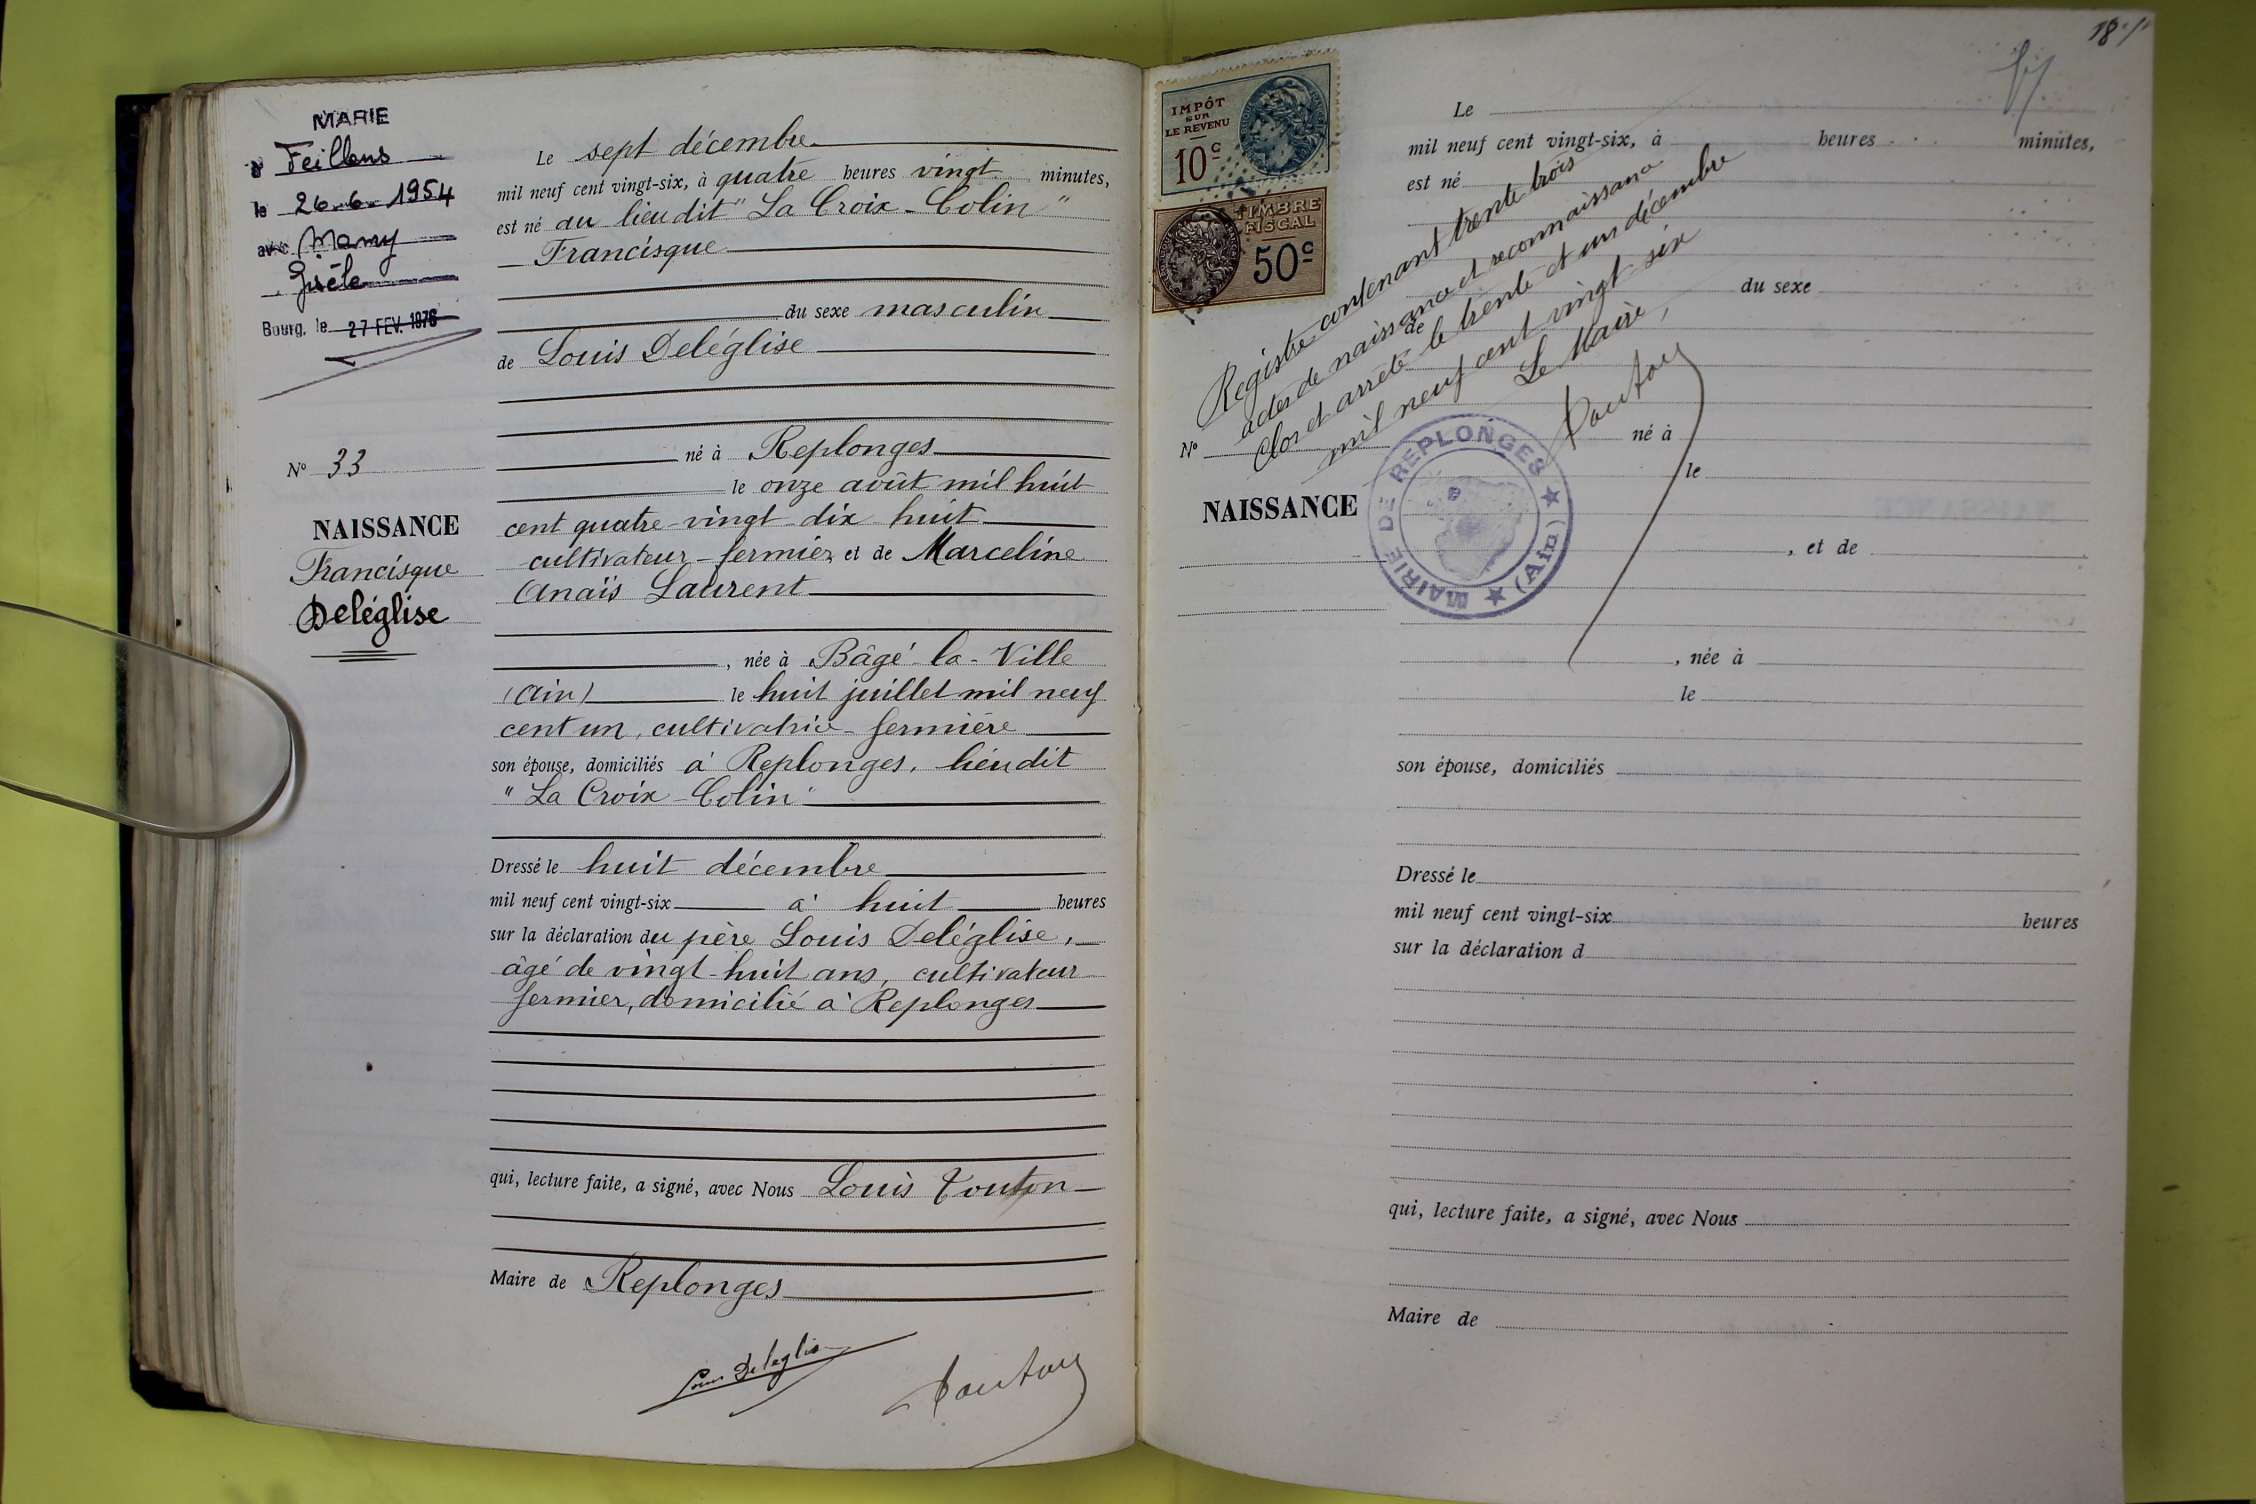 MARIE
à Feillens
le 26-6-1954
avec Mamy
Gisèle
Bourg, le 27 FEV. 1976
N° 33
NAISSANCE
Francisque
Deléglise
Le sept décembre
mil neuf cent vingt-six, à quatre heures vingt minutes,
est né au lieu dit "La Croix-Colin"
Francisque
du sexe masculin
de Louis Deléglise
né à Replonges
le onze août mil huit
cent quatre-vingt-dix-huit
cultivateur-fermier, et de Marceline
Anaïs Laurent
, née à Bâgé-la-Ville
(Ain) le huit juillet mil neuf
cent un, cultivatrice-fermière
son épouse, domiciliés à Replonges, lieu dit
"La Croix-Colin"
Dressé le huit décembre
mil neuf cent vingt-six à huit heures
sur la déclaration du père Louis Deléglise,
âgé de vingt-huit ans, cultivateur
fermier, domicilié à Replonges
qui, lecture faite, a signé, avec Nous Louis Touton
Maire de Replonges
Louis Deleglise
Touton
18
IMPÔT
SUR
LE REVENU
10c
TIMBRE
FISCAL
50c
Registre contenant trente trois
actes de naissance et reconnaissance
Clos et arrêté le trente et un décembre
mil neuf cent vingt six
Le Maire,
Touton
MAIRIE DE REPLONGES ★ (Ain) ★
Le
mil neuf cent vingt-six, à heures minutes,
est né
du sexe
de
N°
né à
le
NAISSANCE
, et de
, née à
le
son épouse, domiciliés
Dressé le
mil neuf cent vingt-six heures
sur la déclaration d
qui, lecture faite, a signé, avec Nous
Maire de